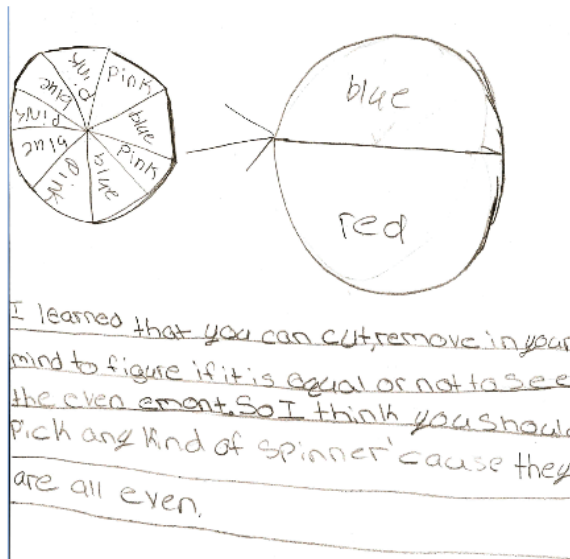 pink
pink
blue
blue
pink
blue
pink
blue
pink
blue
red
I learned that you can cut, remove in your
mind to figure if it is equal or not to see
the even emont. So I think you should
pick any kind of spinner 'cause they
are all even.